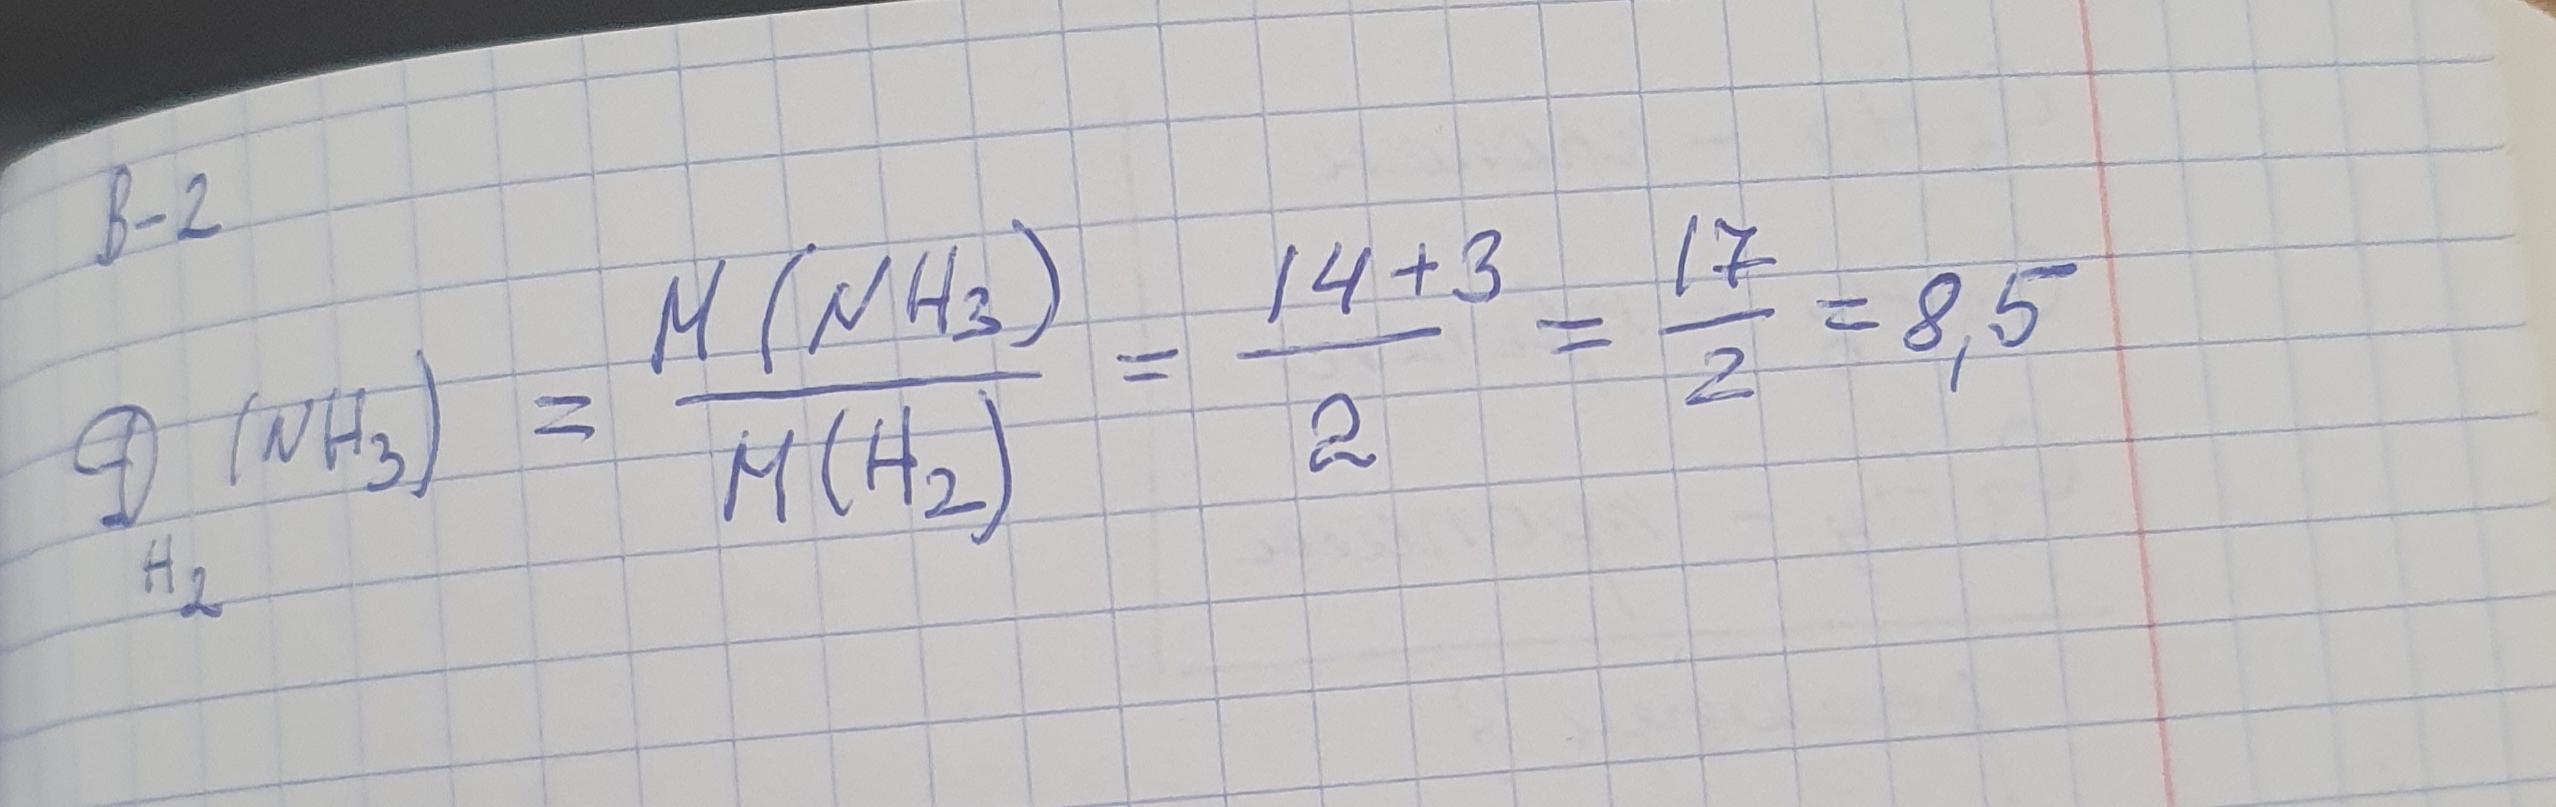 В-2
D H₂ (NH₃) = M(NH₃) / M(H₂) = 14+3 / 2 = 17 / 2 = 8,5